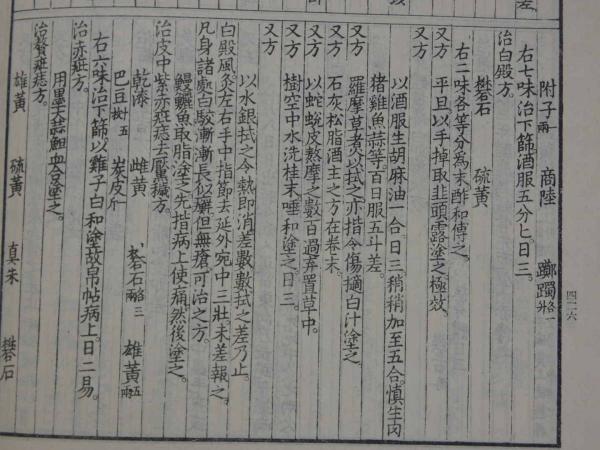 附子一兩 商陸 躑躅各一升
右七味治下篩酒服五分匕日三。
治白殿方。
礬石 硫黃
右二味各等分為末酢和傅之。
又方 平旦以手掉取韭頭露塗之極效。
又方
以酒服生胡麻油一合日三稍稍加至五合慎生肉
猪雞魚蒜等百日服五斗差。
又方 羅摩草煮以拭之亦指令傷擿白汁塗之。
又方 石灰松脂酒主之方在卷末。
又方 以蛇蛻皮熬摩之數百過弃置草中。
又方 樹空中水洗桂末唾和塗之日三。
又方
以水銀拭之令熱即消差數數拭之差乃止。
白殿風灸左右手中指節去延外宛中三壯未差報之。
凡身諸處白駮漸漸長似癬但無瘡可治之方。
鰻鱺魚取脂塗之先指病上使痛然後塗之。
治皮中紫赤疵痣去黶穢方。
乾漆 雌黃 礬石各三兩 雄黃五兩
巴豆十五枚 炭皮一斤
右六味治下篩以雞子白和塗故帛帖病上日二易。
治赤疵方。
用墨大蒜鱓血合塗之。
治贅疵痣方。
雄黃 硫黃 真朱 礬石
四二六